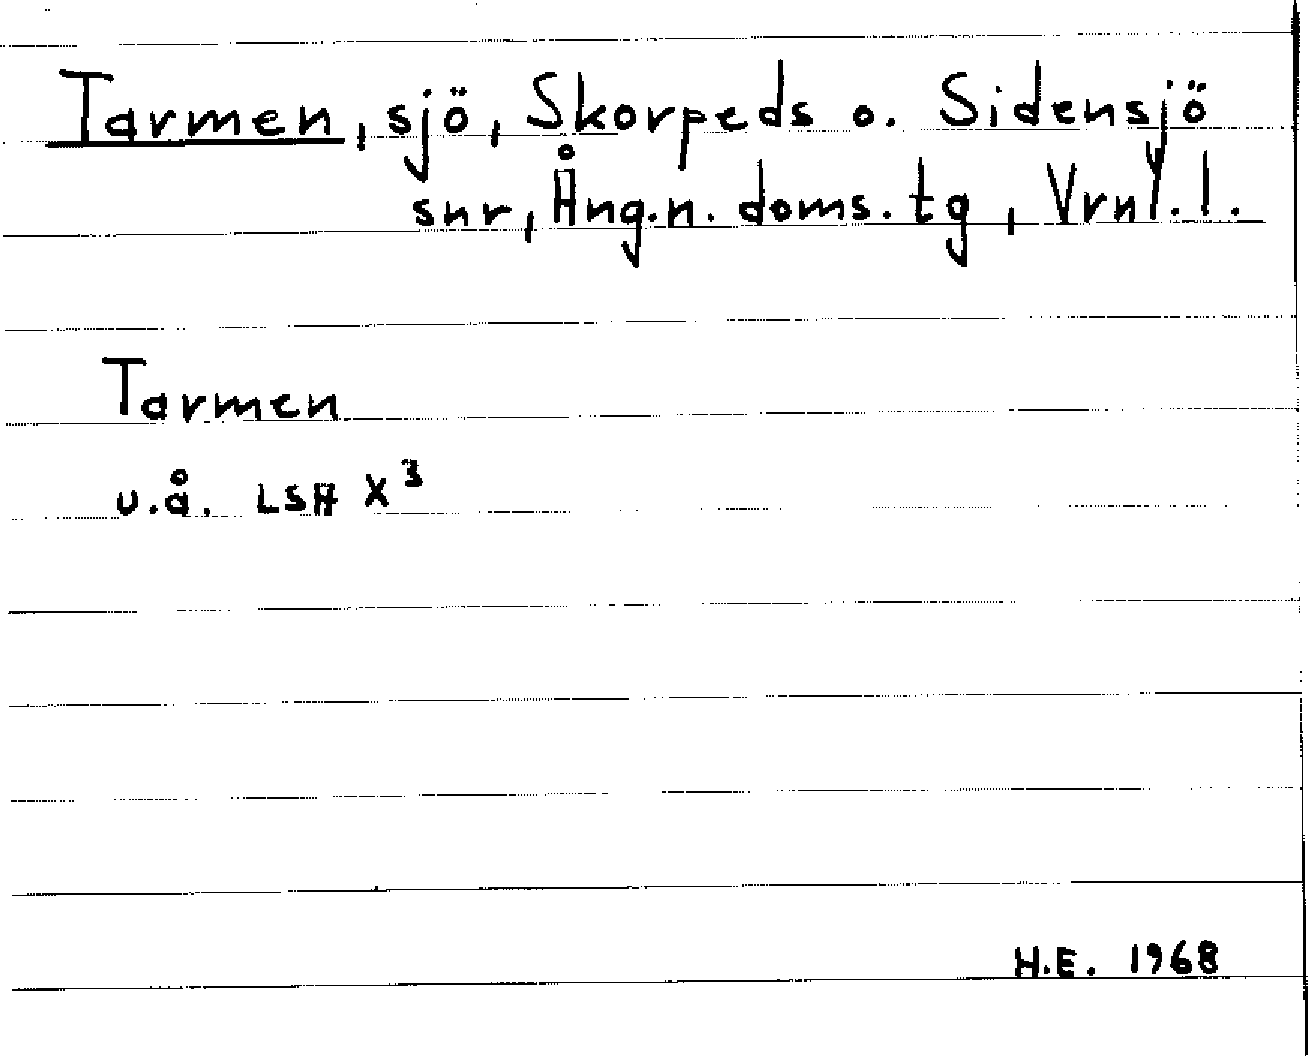 Tarmen, sjö, Skorpeds o. Sidensjö
snr, Ång.n. doms. tg, Vrnl. l.
Tarmen
u.å. LSA X³
H.E. 1968